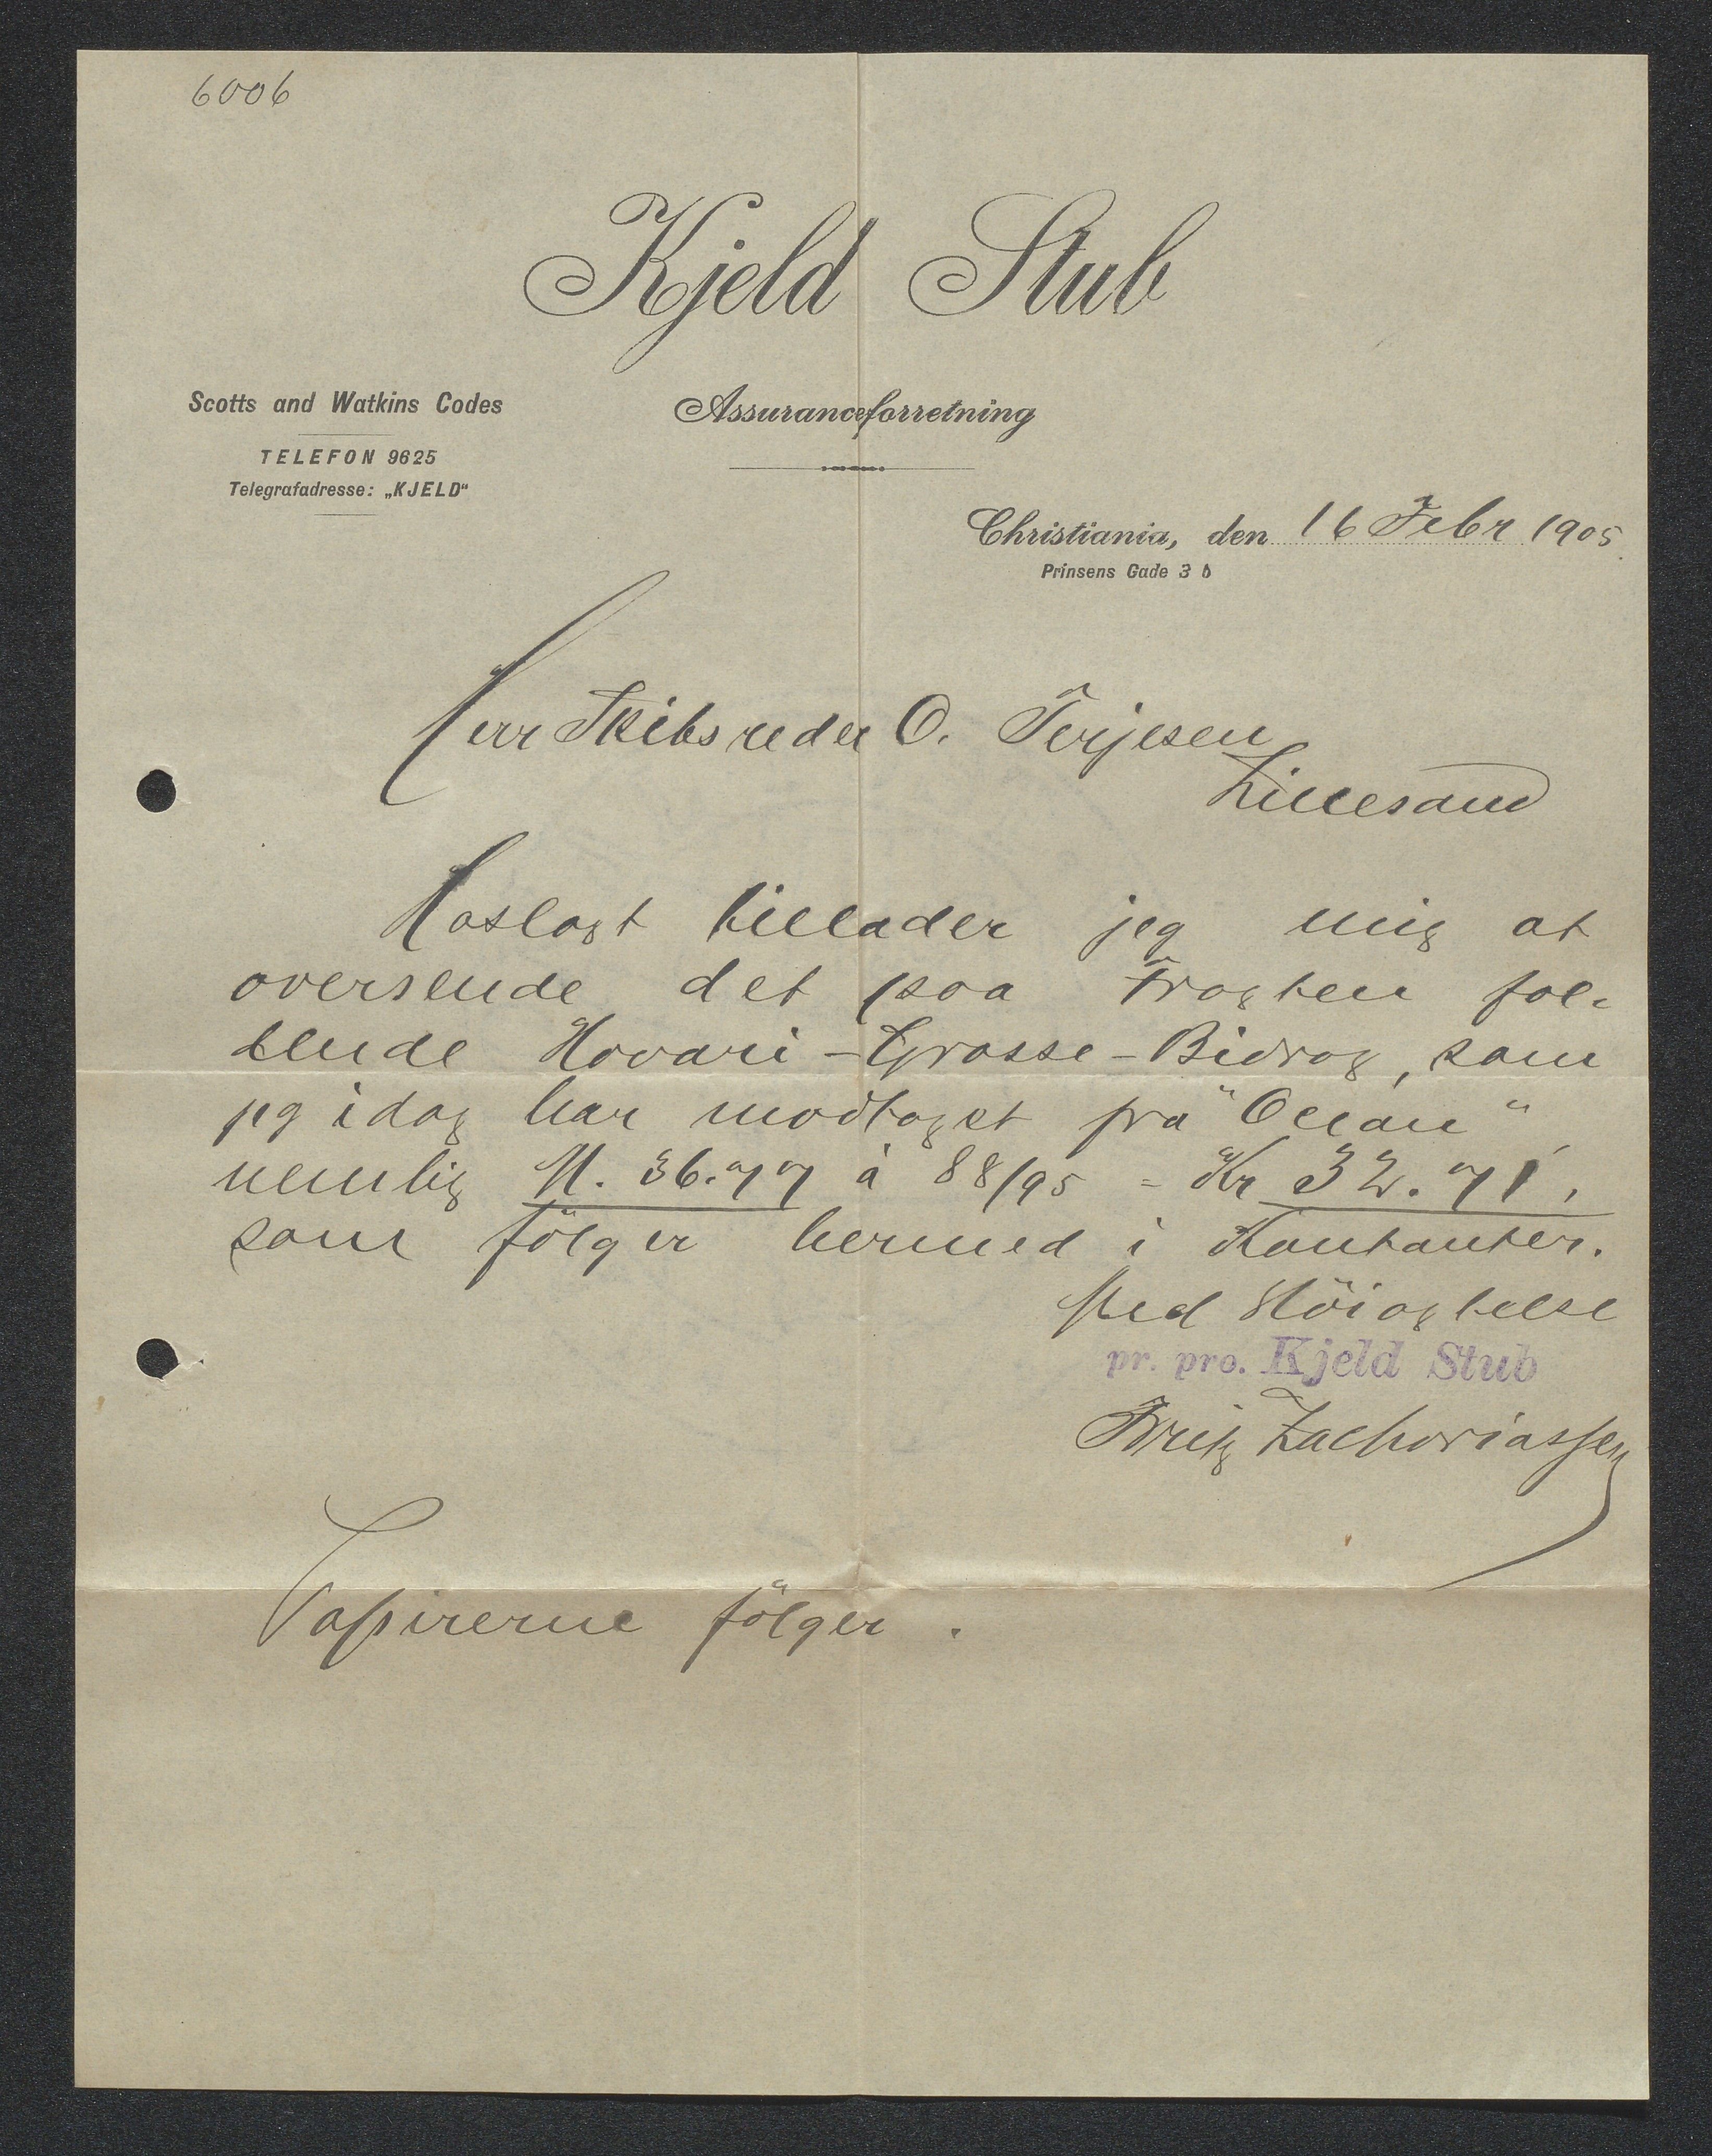 6006
Kjeld Stub
Scotts and Watkins Codes
Assuranceforretning
TELEFON 9625
Telegrafadresse: „KJELD“
Christiania, den 16 Febr 1905.
Prinsens Gade 3 b
Herr Skibsreder O. Terjesen
Lillesand
Hoslagt tillader jeg mig at
oversende det paa Fragten fal-
tende Havari-Grosse-Bidrag, som
jeg idag har modtaget fra "Ocean",
nemlig M. 36.77 à 88/95 = Kr 32.71,
som fölger hermed i Kontanter.
Med Höiagtelse
pr. pro. Kjeld Stub
Fritz Zachariassen
Papirerne fölger.